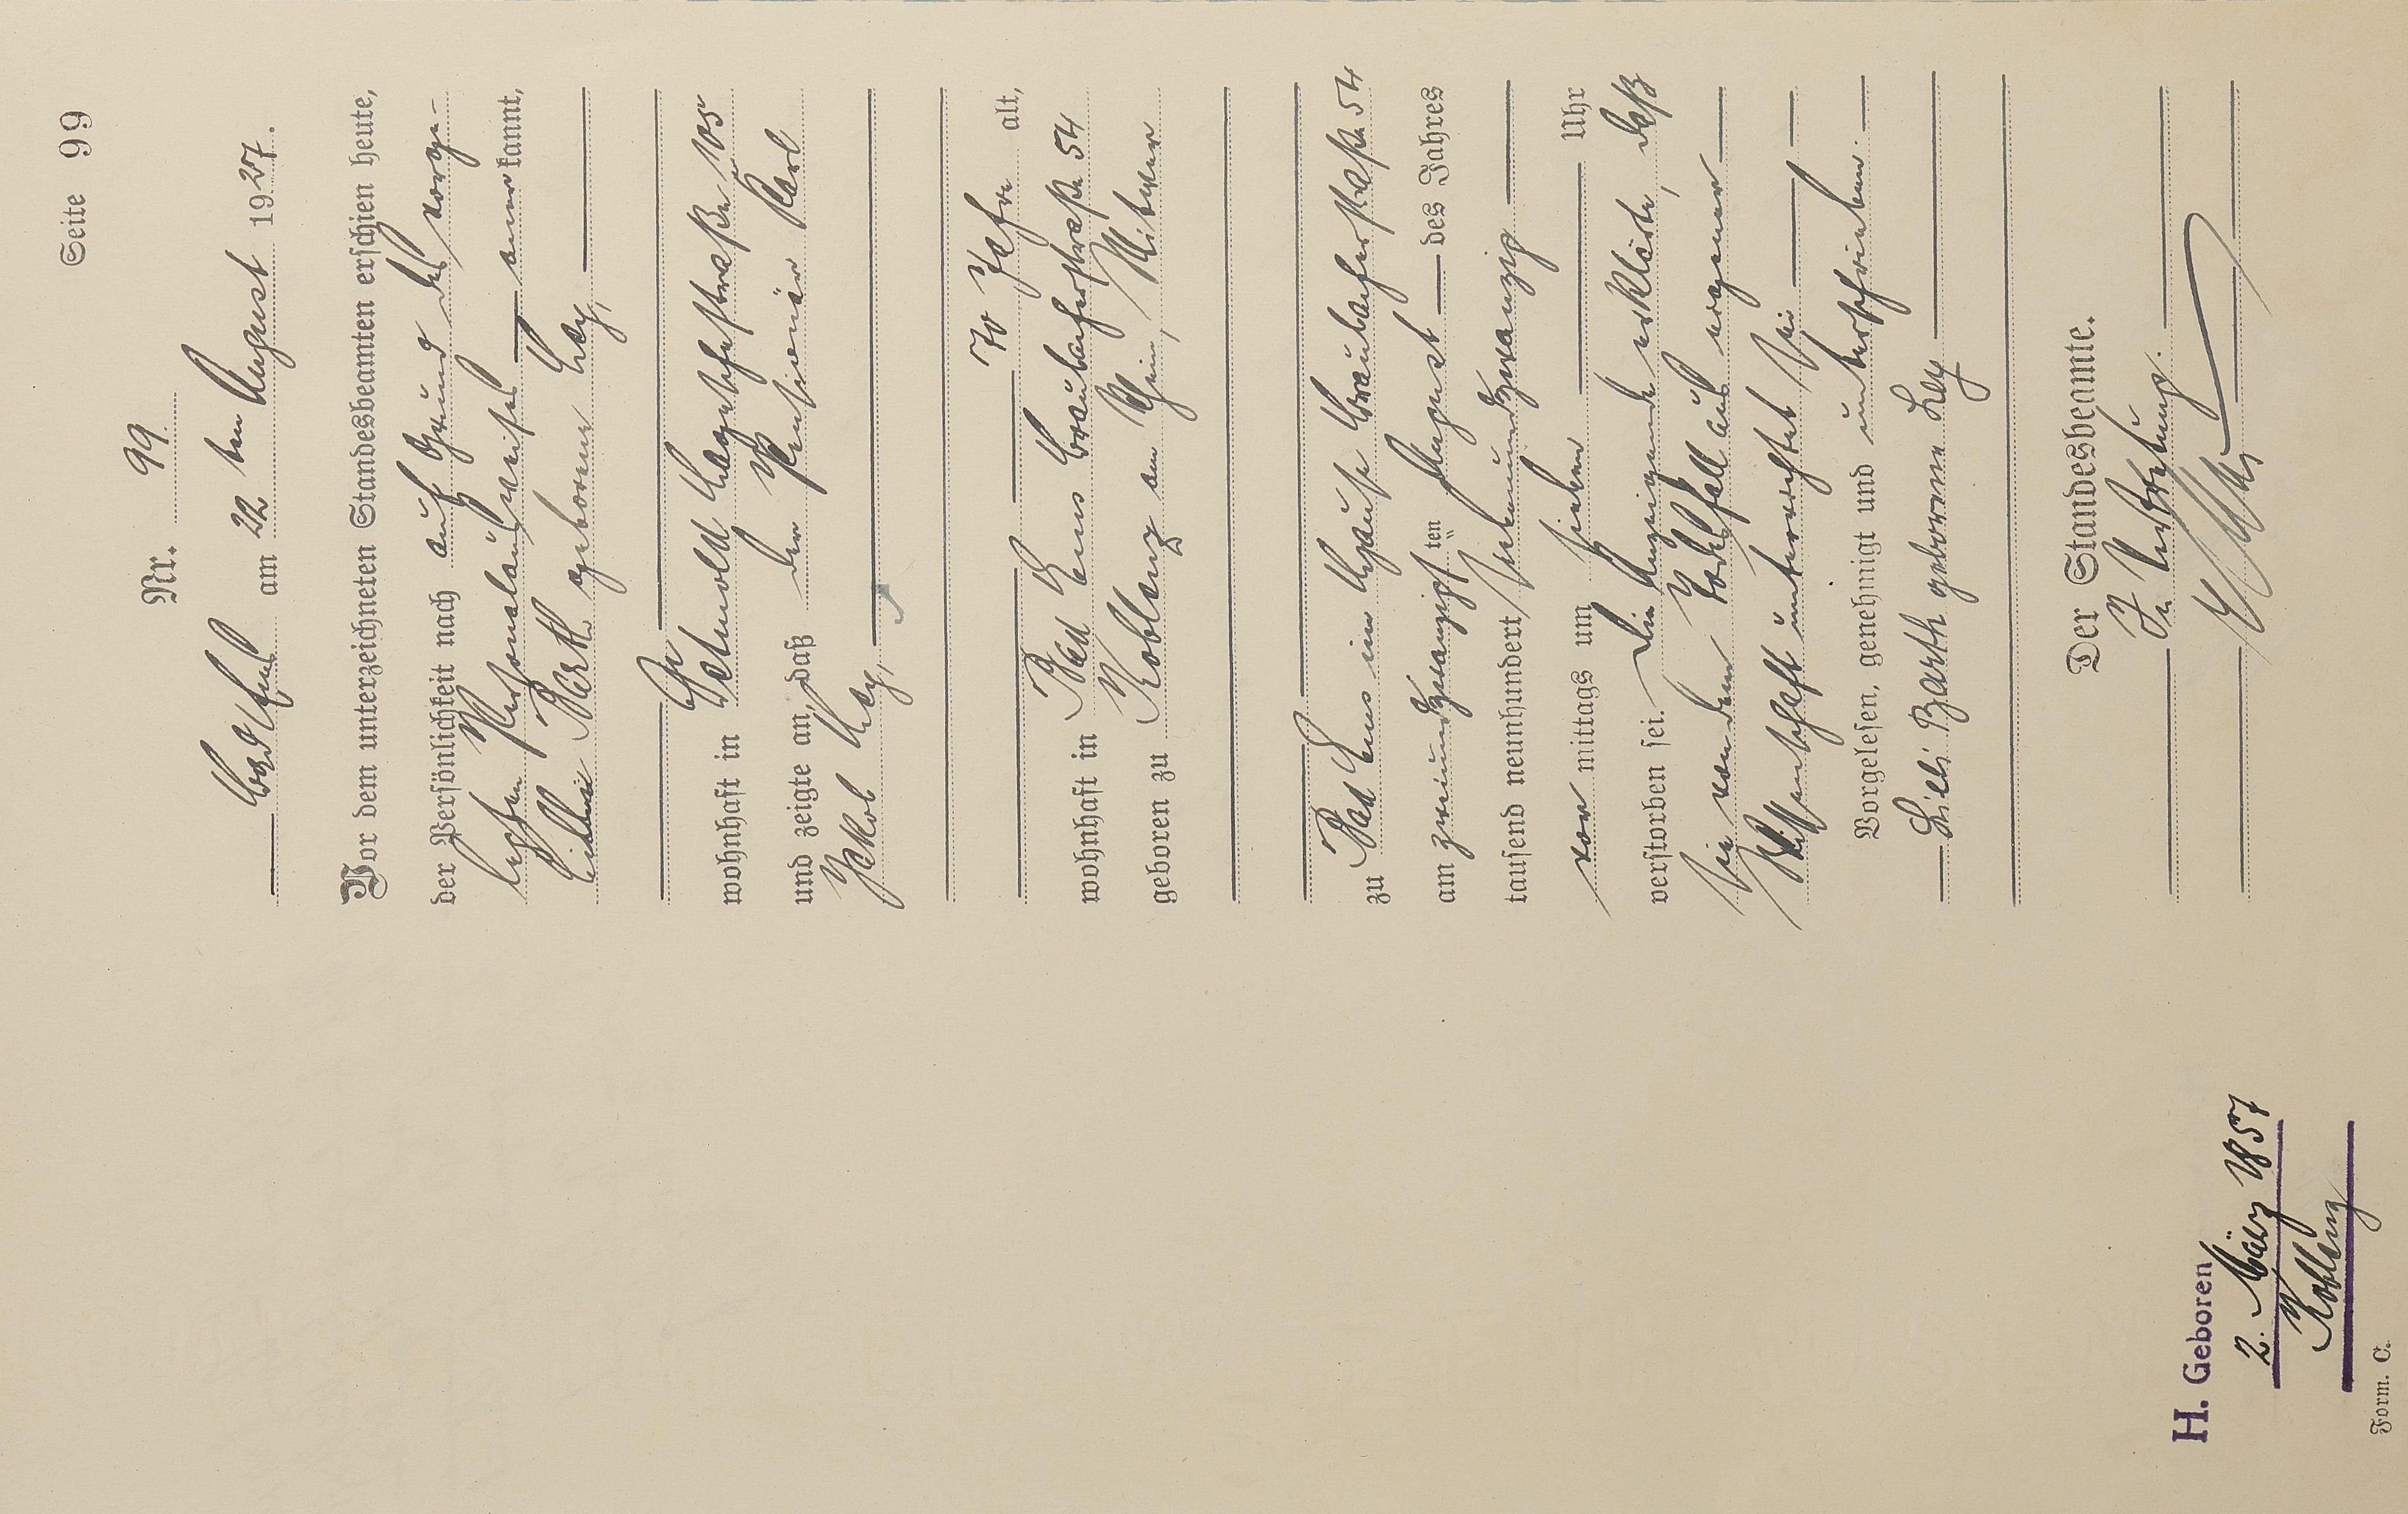 Seite 99
Nr. 99.
am 22 ten August 1927.
Vor dem unterzeichneten Standesbeamten erschien heute,
der Persönlichkeit nach auf Grund des vorge-
legten Personalausweises anerkannt,
Barth geborene Ley,
wohnhaft in Detmold Lagesche Straße 105
und zeigte an, daß der Rentner Karl
Jakob Ley,
70 Jahre alt,
wohnhaft in Bad Ems Braubacherstraße 54
geboren zu Koblenz am Rhein, Witwer
zu Bad Ems im Hause Braubacherstraße 54
am zweiundzwanzigsten August des Jahres
tausend neunhundert siebenundzwanzig
vor mittags um sieben Uhr
verstorben sei. Die Anzeigende erklärte, daß
sie von dem Todesfall aus eigener
Wissenschaft unterrichtet sei
Vorgelesen, genehmigt und unterschrieben.
Lilli Barth geborene Ley
Der Standesbeamte.
In Vertretung.
H. Geboren
2. März 1857
Koblenz
Form. C.